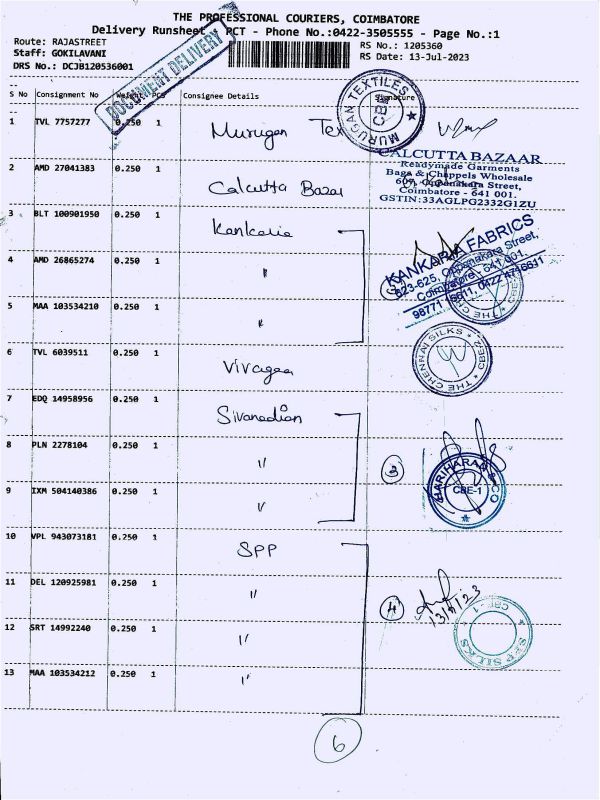 THE PROFESSIONAL COURIERS, COIMBATORE
Delivery Runsheet - PCT - Phone No.:0422-3505555 - Page No.:1
Route: RAJASTREET
Staff: GOKILAVANI
DRS No.: DCJB120536001
RS No.: 1205360
RS Date: 13-Jul-2023
DOCUMENT DELIVERY
S No Consignment No Weight PCS Consignee Details Signature
1 TVL 7757277 0.250 1 Murugan Tex
MURUGAN TEXTILES CBE
2 AMD 27041383 0.250 1 Calcutta Bazar
CALCUTTA BAZAAR
Readymade Garments
Bags & Chappels Wholesale
607, Oppanakara Street,
Coimbatore - 641 001.
GSTIN:33AGLPG2332G1ZU
3 BLT 100901950 0.250 1 Kankaria
4 AMD 26865274 0.250 1 "
KANKARIA FABRICS
623-625, Oppanakara Street,
Coimbatore - 641 001.
5 MAA 103534210 0.250 1 "
6 TVL 6039511 0.250 1
THE CHENNAI SILKS
7 EDQ 14958956 0.250 1
8 PLN 2278104 0.250 1 "
3
9 IXM 504140386 0.250 1 "
CBE-1
10 VPL 943073181 0.250 1 SPP
11 DEL 120925981 0.250 1 "
4
12 SRT 14992240 0.250 1 "
SPP SILKS CBE-1
13 MAA 103534212 0.250 1 "
6